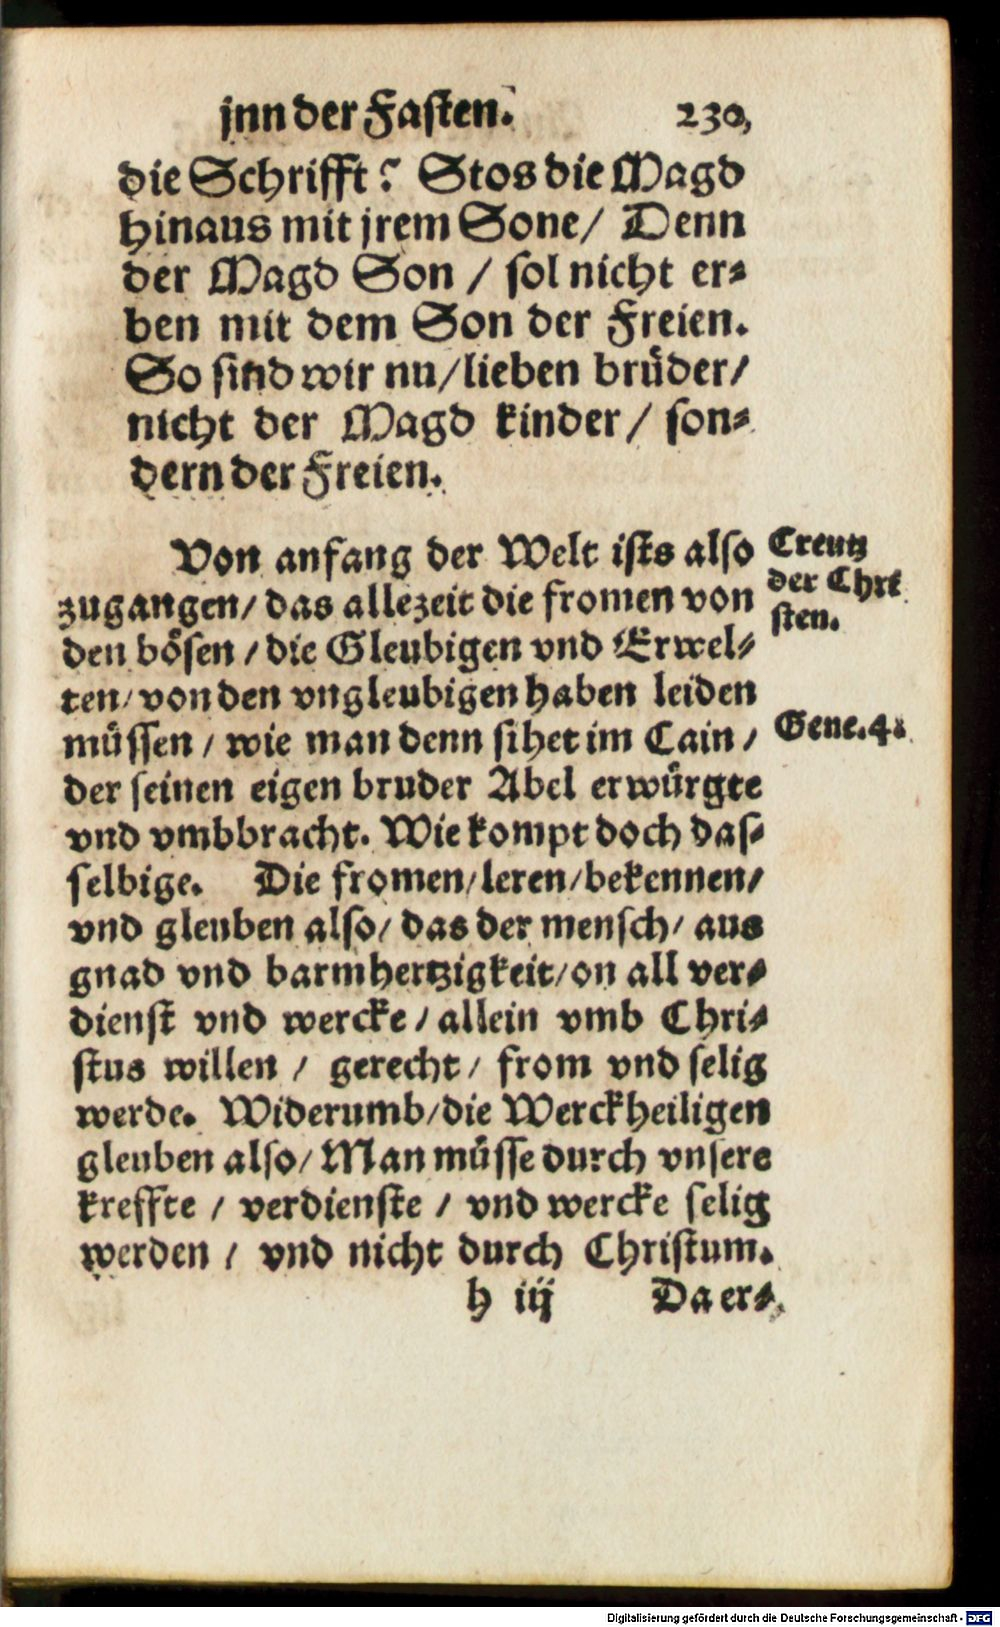 jnn der Fasten. 230,
die Schrifft? Stos die Magd
hinaus mit jrem Sone/ Denn
der Magd Son / sol nicht er⸗
ben mit dem Son der Freien.
So sind wir nu/lieben brüder/
nicht der Magd kinder/ son⸗
dern der Freien.
Von anfang der Welt ists also
zugangen/ das allezeit die fromen von
den bösen / die Gleubigen vnd Erwel⸗
ten/ von den vngleubigen haben leiden
müssen / wie man denn sihet im Cain /
der seinen eigen bruder Abel erwürgte
vnd vmbbracht. Wie kompt doch das⸗
selbige. Die fromen/leren/bekennen/
vnd gleuben also/ das der mensch/ aus
gnad vnd barmhertzigkeit/on all ver⸗
dienst vnd wercke / allein vmb Chri⸗
stus willen / gerecht/ from vnd selig
werde. Widerumb/die Werckheiligen
gleuben also/ Man müsse durch vnsere
kreffte / verdienste / vnd wercke selig
werden / vnd nicht durch Christum.
h iij Da er⸗
Creutz
der Chri
sten.
Gene.4.
Digitalisierung gefördert durch die Deutsche Forschungsgemeinschaft - DFG